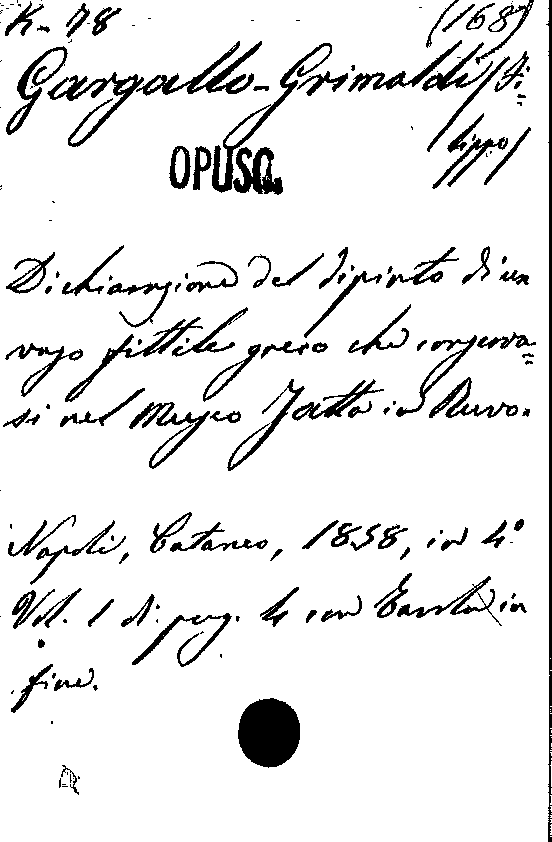 K- 78 (168)
Gargallo-Grimaldi (Fi=
lippo)
OPUSC.
Dichiarazione del dipinto di un
vaso fittile greco che conserva=
si nel Museo Jatta in Ruvo.
Napoli, Cataneo, 1858, in 4°
Vol. 1 di pag. 4 con Tavola in
fine.